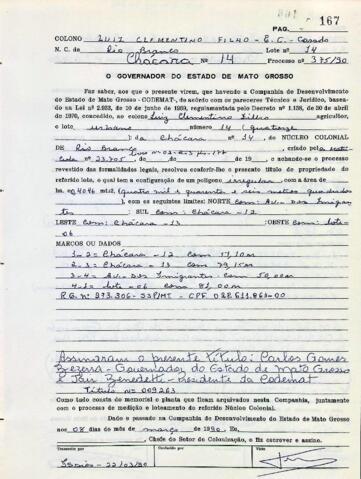 167
PAG.
COLONO LUIZ CLEMENTINO FILHO - E.C. - Casado
N. C. de Rio Branco Lote nº 14
Chácara Nº 14 Processo nº 375/90
O GOVERNADOR DO ESTADO DE MATO GROSSO
Faz saber, aos que o presente virem, que havendo a Companhia de Desenvolvimento
do Estado de Mato Grosso - CODEMAT-, de acôrdo com os pareceres Técnico e Jurídico, basea-
do na Lei nº 2.933, de 20 de junho de 1969, regulamentada pelo Decreto nº 1.138, de 30 de abril
de 1970, concedido, ao colono Luiz Clementino Filho agricultor,
o lote urbano número 14 (quatorze
) da Chácara nº 14, do NÚCLEO COLONIAL
DE Rio Branco, criado pela
nº 23.705 de de de 19 , e achando-se o processo
revestido das formalidades legais, resolveu conferir-lhe o presente título de propriedade do
referido lote, o qual tem a configuração de um polígono irregular com a área de
ha. 0,4046 mts2 (quatro mil e quarenta e seis metros quadrados
), com os seguintes limites: NORTE com: Av. dos Imigran
tes ; SUL com: Chácara - 12
LESTE com: Chácara - 13 ; OESTE com: lote -
06
MARCOS OU DADOS
1-2 = Chácara - 12 com
2-3 = Chácara - 13 com
3-4 = Av. dos Imigrantes com 50,00m
4-1 = lote - 06 com 81,00m
Assinaram o presente título: Carlos Gomes
Bezerra - Governador do Estado de Mato Grosso
e Benedetti - Presidente da Codemat
Título nº 009263
Como tudo consta do memorial e planta que ficam arquivados nesta Companhia, juntamente
com o processo de medição e loteamento do referido Núcleo Colonial.
Dado e passado na Companhia de Desenvolvimento do Estado de Mato Grosso
aos 08 dias do mês de março de 1990. Eu,
, Chefe do Setor de Colonização, o fiz escrever e assino.
Transcrito por Conferido por Visto
22/03/90